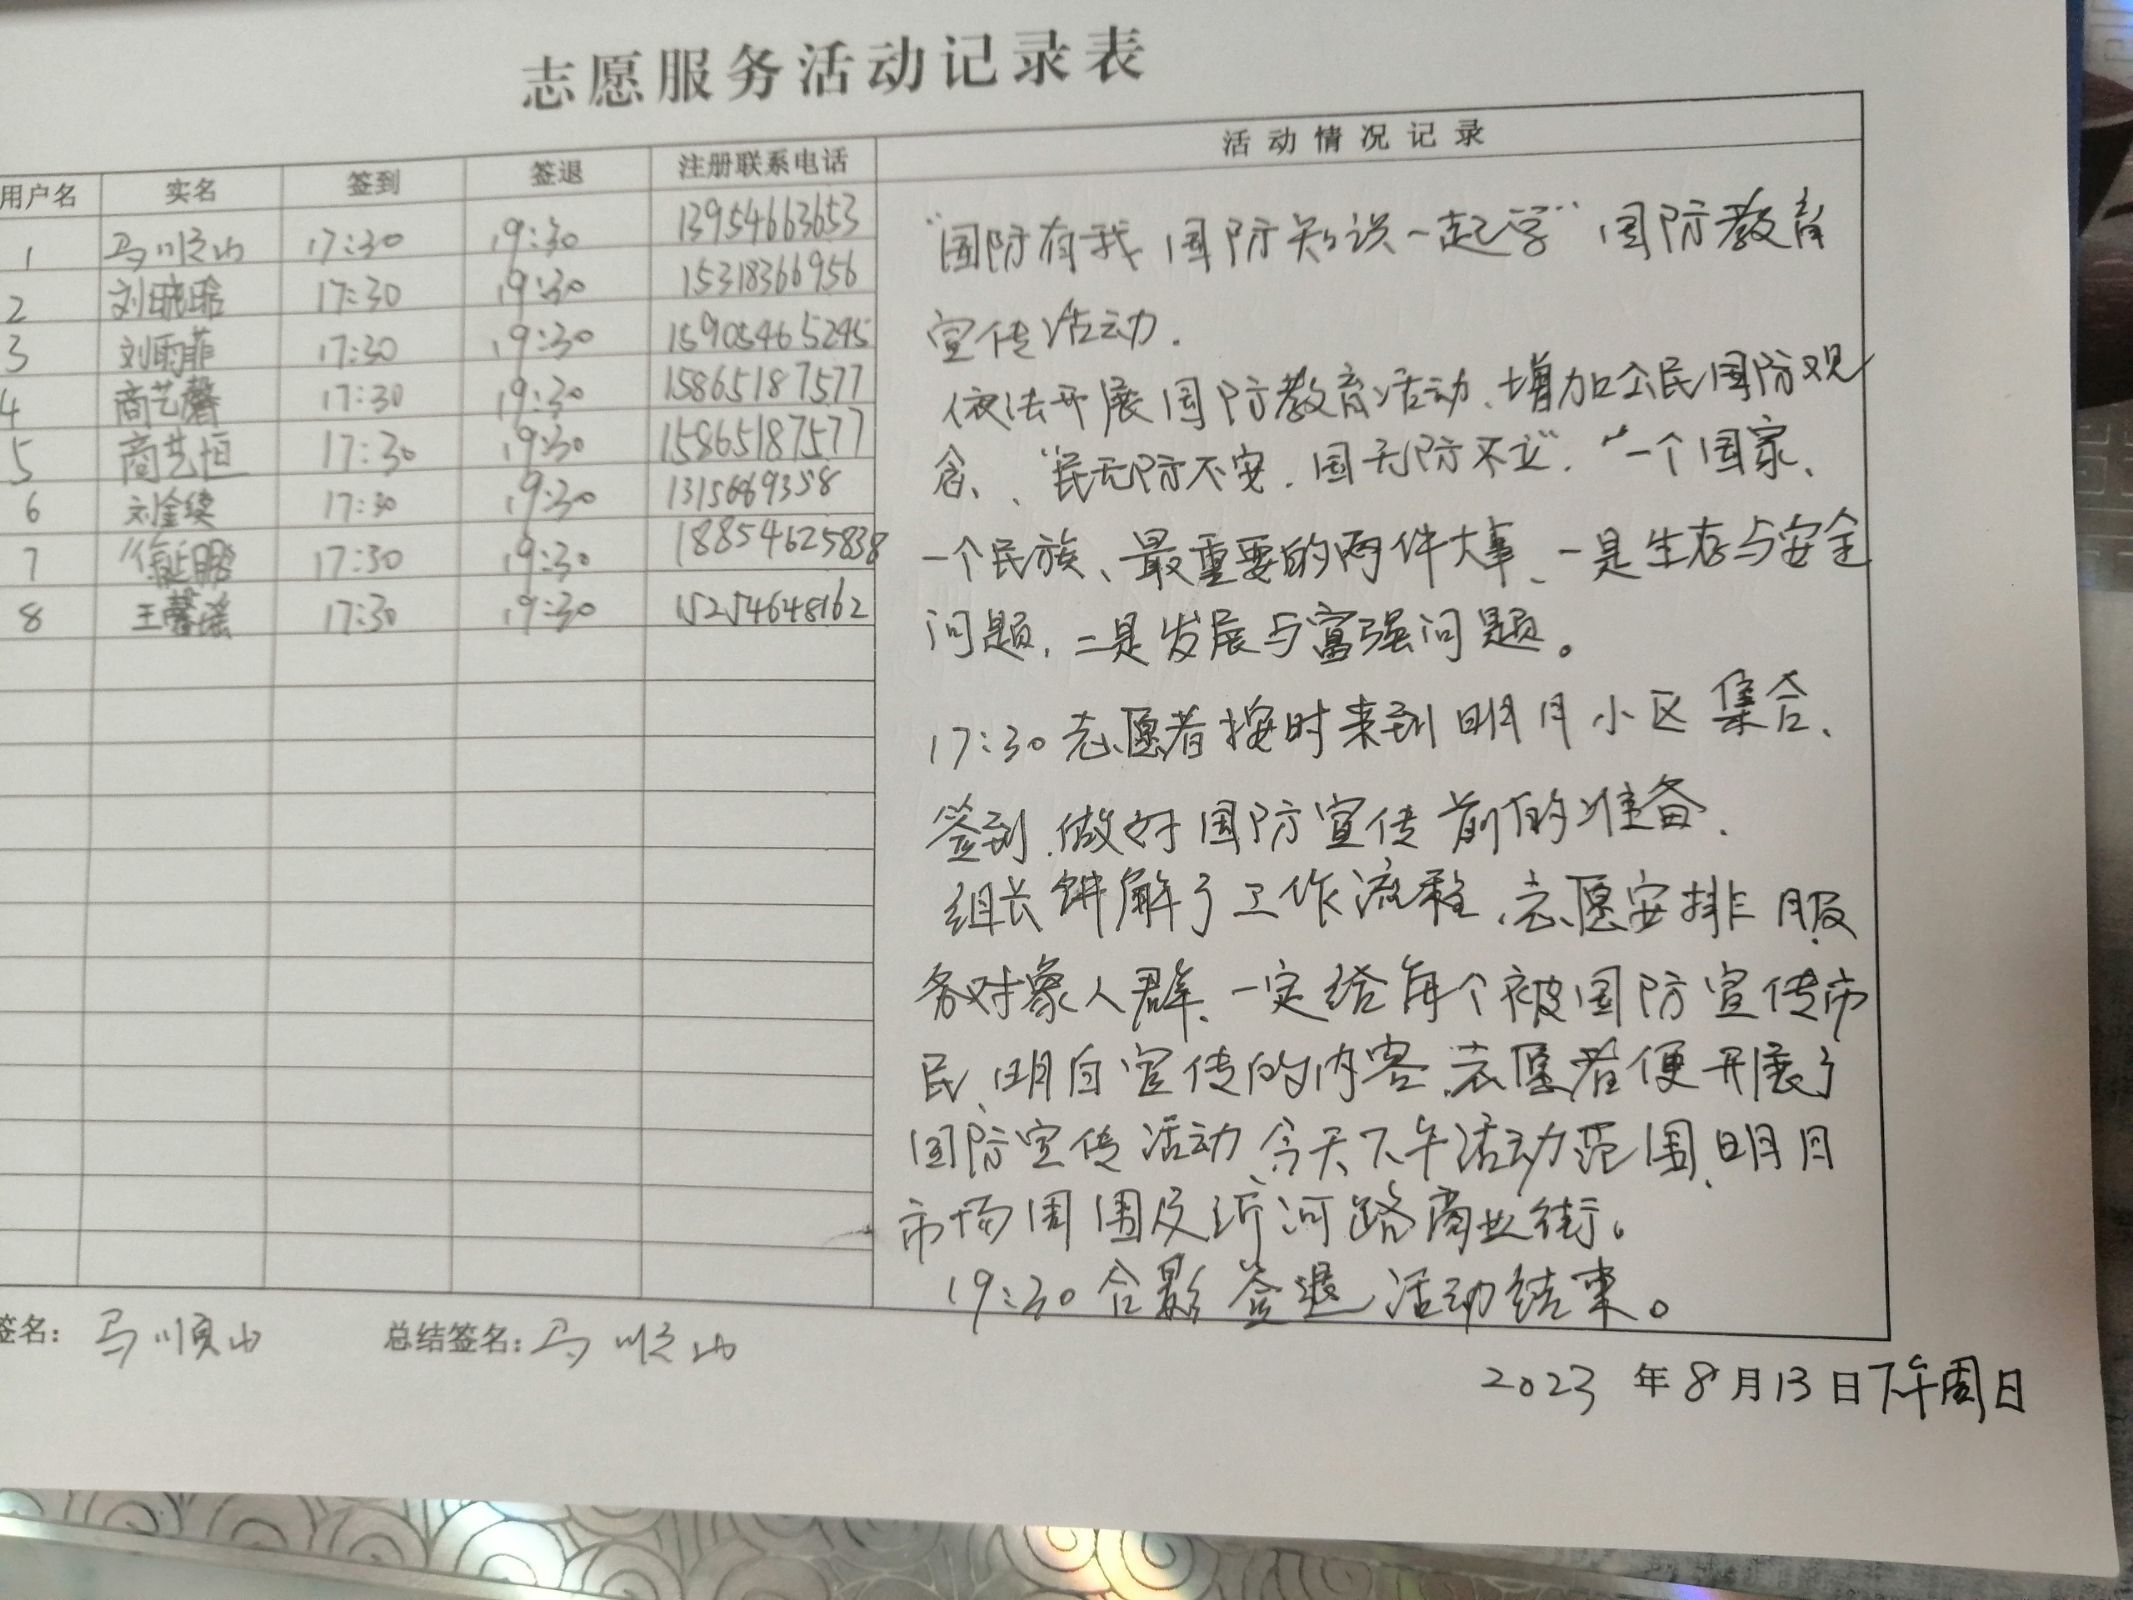 志愿服务活动记录表
用户名 实名 签到 签退 注册联系电话 活动情况记录
1 马顺山 17:30 19:30 13954663653
2 刘晓晗 17:30 19:30 15318366956
3 刘雨菲 17:30 19:30 15905465245
4 商艺馨 17:30 19:30 15865187577
5 商艺恒 17:30 19:30 15865187577
6 刘金 17:30 19:30 1315669358
7 17:30 19:30 18854625838
8 王馨瑶 17:30 19:30 15254648162
“国防有我 国防知识一起学”国防教育
宣传活动.
依法开展国防教育活动、增加公民国防观
念、“民无防不安.国无防不立”.“一个国家、
一个民族、最重要的两件大事、一是生存与安全
问题.二是发展与富强问题。
17:30志愿者按时来到明月小区集合、
签到.做好国防宣传前的准备.
组长讲解了工作流程、志愿安排服
务对象人群、一定给每个被国防宣传市
民、明白宣传的内容.志愿者便开展了
国防宣传活动、今天下午活动范围、明月
市场周围及沂河路商业街。
19:30合影签退、活动结束。
签名： 马顺山 总结签名： 马顺山
2023 年 8 月 13 日下午周日